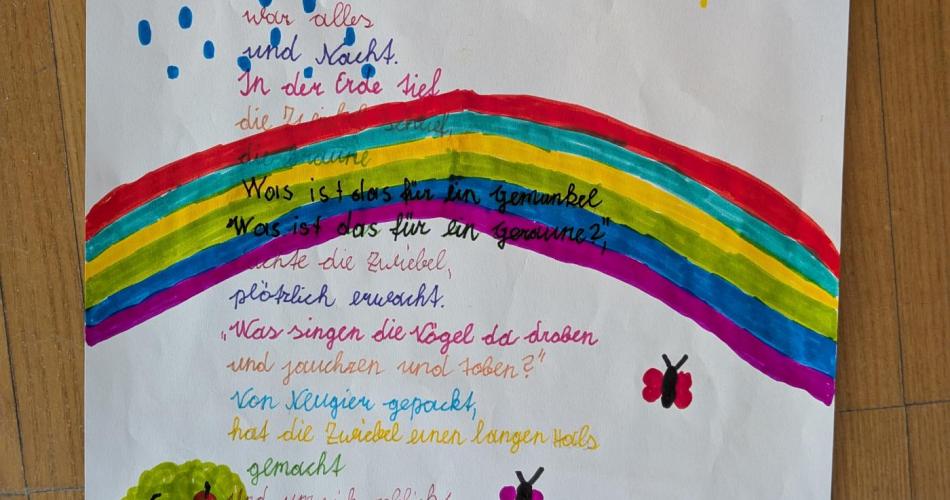 war alles
und Nacht.
In der Erde tief
die Zwiebel schlief,
die braune
Was ist das für ein Gemunkel
"Was ist das für ein Geraune?",
dachte die Zwiebel,
plötzlich erwacht.
"Was singen die Vögel da droben
und jauchzen und toben?"
Von Neugier gepackt,
hat die Zwiebel einen langen Hals
gemacht
und um sich